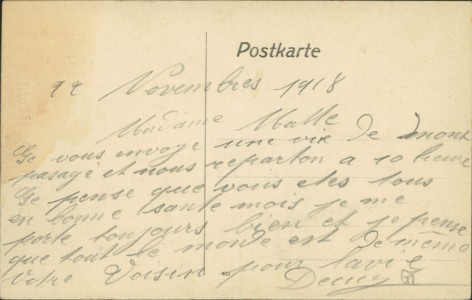 Postkarte
22 Novembres 1918
Madame Malle
Je vous envoye une vix de mont
pasage et nous reparton a 10 heure
Je pense que vous etes tous
en bonne sante mois je me
porte toujours bien et je pense
que tout le monde est de même
Votre Voisin pour la vie